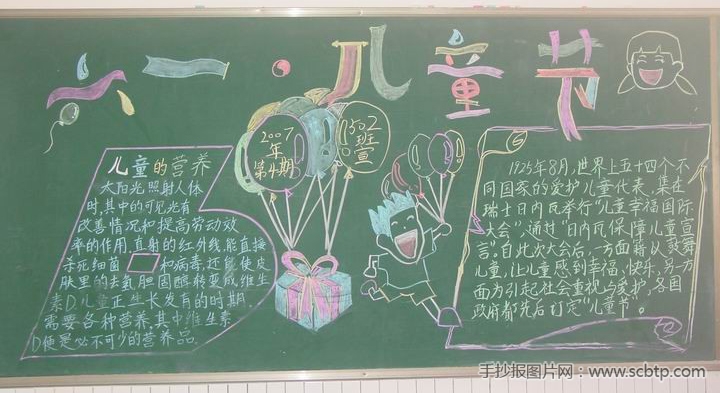 六一·儿童节
2007
年
第4期
0502
班
宣
儿童的营养
太阳光照射人体
时,其中的可见光有
改善情况和提高劳动效
率的作用,直射的红外线,能直接
杀死细菌和病毒,还能使皮
肤里的去氧胆固醇转变成维生
素D,儿童正生长发育的时期,
需要各种营养,其中维生素
D便是必不可少的营养品.
1925年8月,世界上五十四个不
同国家的爱护儿童代表,集在
瑞士日内瓦举行“儿童幸福国际
大会”,通过“日内瓦保障儿童宣
言”。自此次大会后,一方面将以鼓舞
儿童,让儿童感到幸福、快乐,另一方
面为引起社会重视与爱护,各国
政府都先后订定“儿童节”。
手抄报图片网:www.scbtp.com